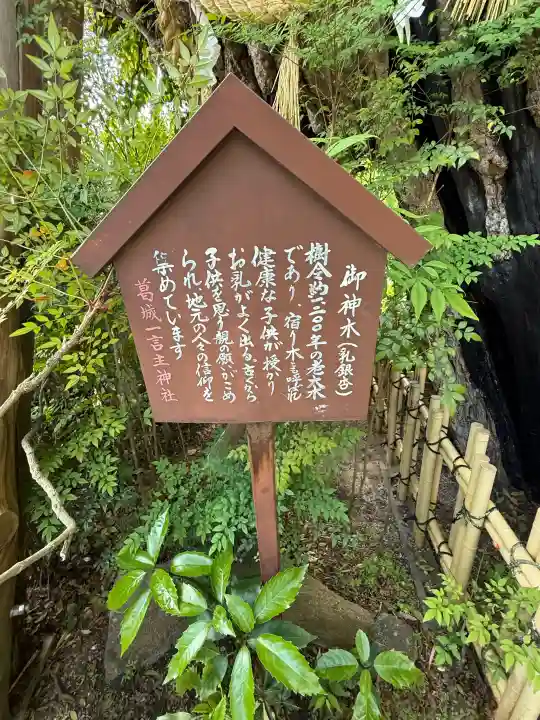 御神木(乳銀杏)
樹令約一、二〇〇年の老大木
であり、宿り木とも呼ばれ
健康な子供が授かり
お乳がよく出る。古くから
子供を思う親の願いがこめ
られ、地元の人々の信仰を
集めています
葛城一言主神社